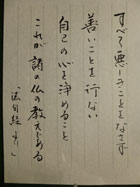 すべて悪しきことをなさず
善いことを行ない
自己の心を浄めること
これが諸の仏の教えである
「法句経より」